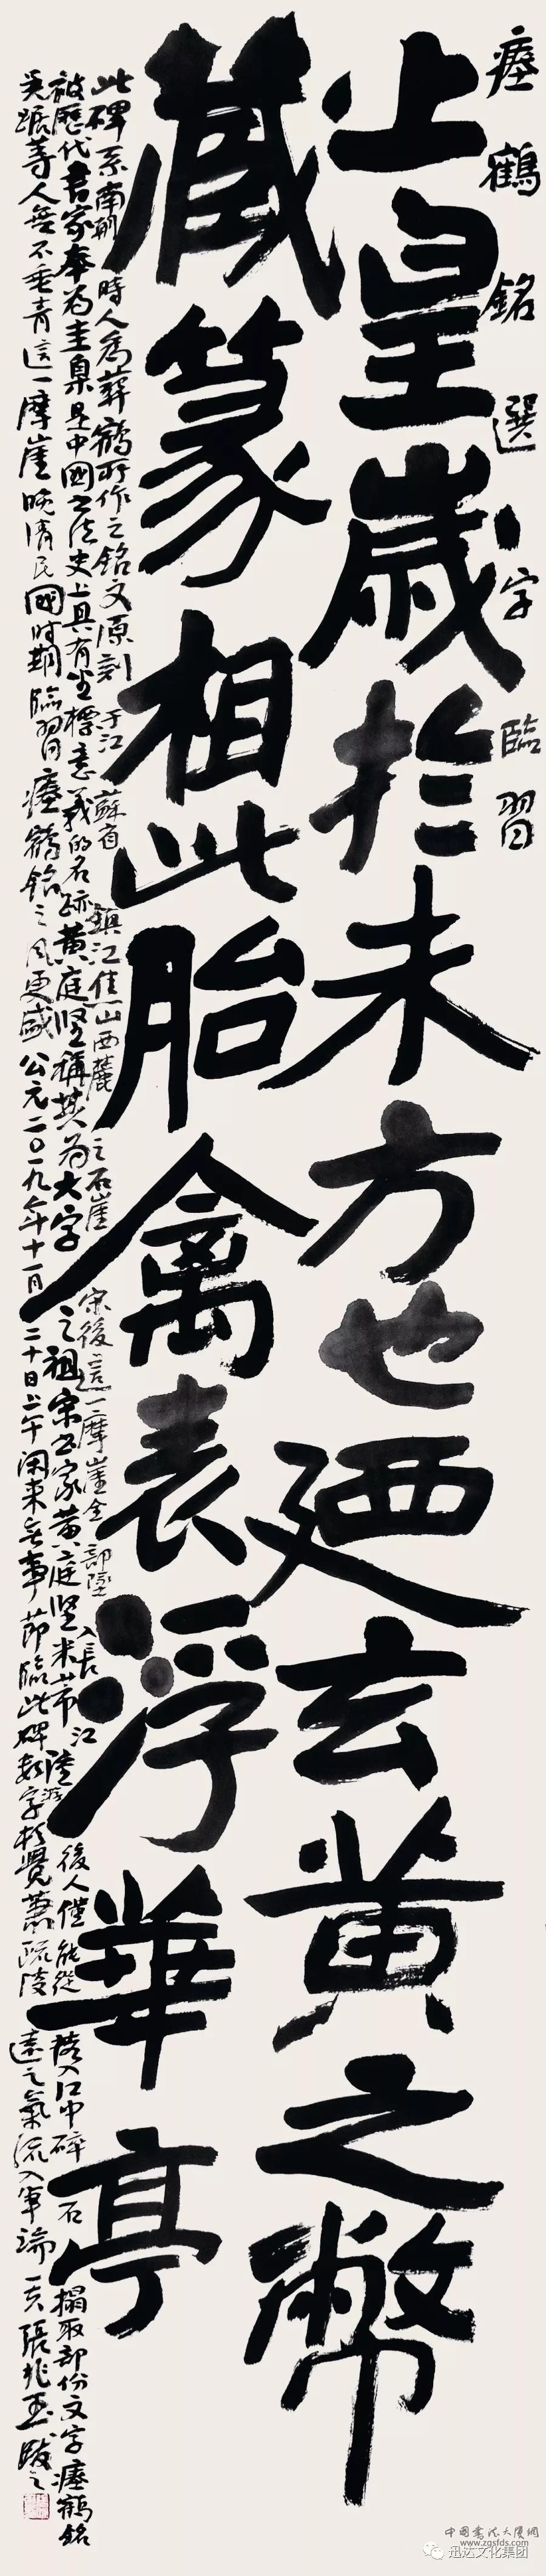 瘞鶴銘選字臨習
上皇歲於未方也廼玄黃之幣
藏篆相此胎禽表浮華亭
此碑系南朝時人為葬鶴所作之銘文原刻于江蘇省鎮江焦山西麓之石崖宋後這一摩崖全部墜入長江後人僅能從落入江中碎石搨取部份文字瘞鶴銘
被歷代書家奉為圭臬是中國书法史上具有坐標意義的名跡黃庭堅稱其為大字之祖宋书家黃庭堅米芾陸游
吳琚等人無不垂青這一摩崖晚清民國時期臨習瘞鶴銘之風更盛公元二〇一九年十一月二十日上午閑來無事節臨此碑數字於覺蕭疏淩遠之氣流入筆端一笑張兆玉跋之
中国書法大廈網
www.zgsfds.com
迅达文化集团